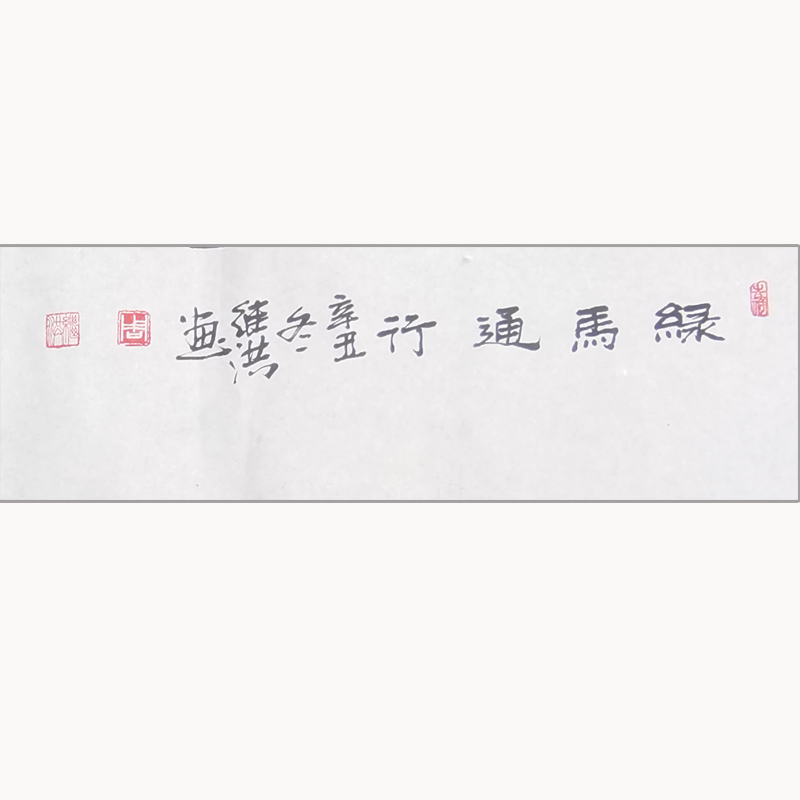 緑馬通行
辛丑
冬
維洪
畫
周